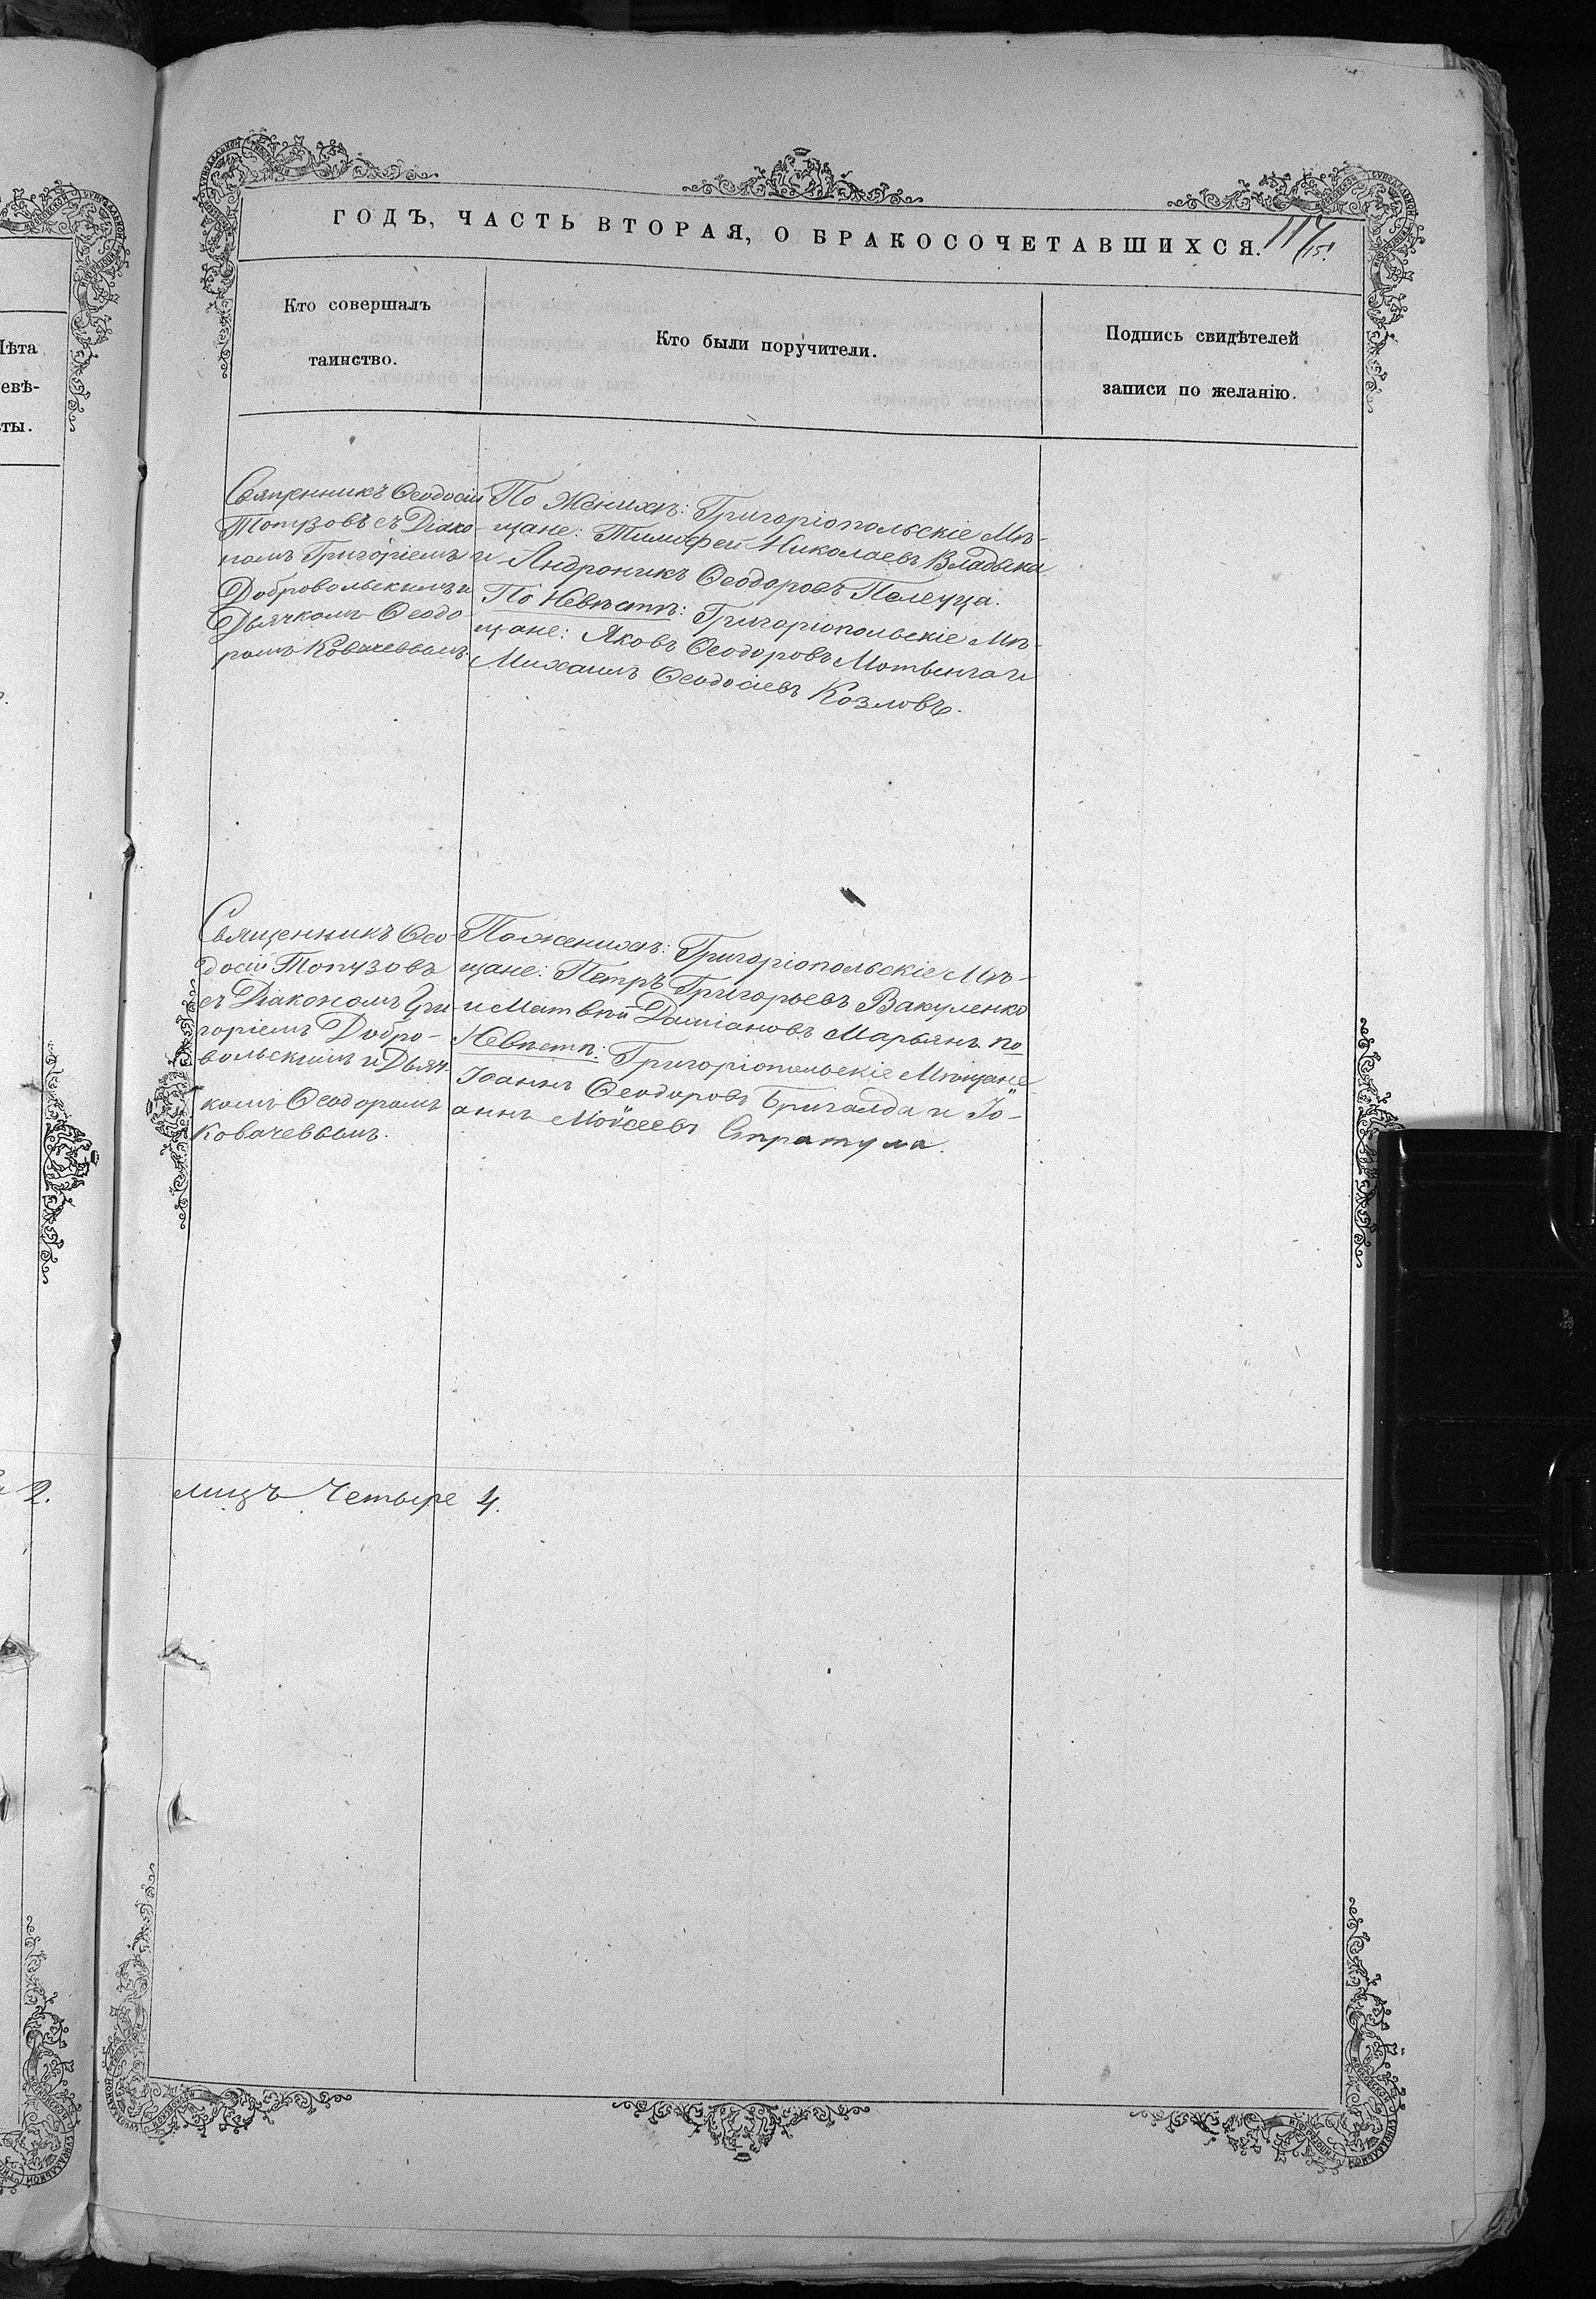 ГОДЪ, ЧАСТЬ ВТОРАЯ, О БРАКОСОЧЕТАВШИХСЯ.
Кто совершалъ
таинство.
Кто были поручители.
Подпись свидѣтелей
записи по желанію.
Лѣта
невѣ-
сты.
Священникъ Ѳеодосій
Топузовъ съ Діако-
номъ Григоріемъ
Добровольскимъ и
Дьячкомъ Ѳеодо-
ромъ Ковачевымъ.
По Женихѣ: Григоріопольскіе Мѣ-
щане: Тимофей Николаевъ Владыка
и Андроникъ Ѳеодоровъ Палеуца.
По Невѣстѣ: Григоріопольскіе Мѣ-
щане: Яковъ Ѳеодоровъ Мотынга и
Михаилъ Ѳеодосіевъ Козловъ.
Священникъ Ѳео-
досій Топузовъ
съ Діакономъ Гри-
горіемъ Добро-
вольскимъ и Дьяч-
комъ Ѳеодоромъ
Ковачевымъ.
По женихѣ: Григоріопольскіе Мѣ-
щане: Петръ Григорьевъ Вакуленко
и Матвѣй Даміановъ Марьянъ. по
Невѣстѣ: Григоріопольскіе Мѣщане
Іоаннъ Ѳеодоровъ Бригалда и Іо-
аннъ Моѵсеевъ Стратула.
2.
лицъ Четыре 4.